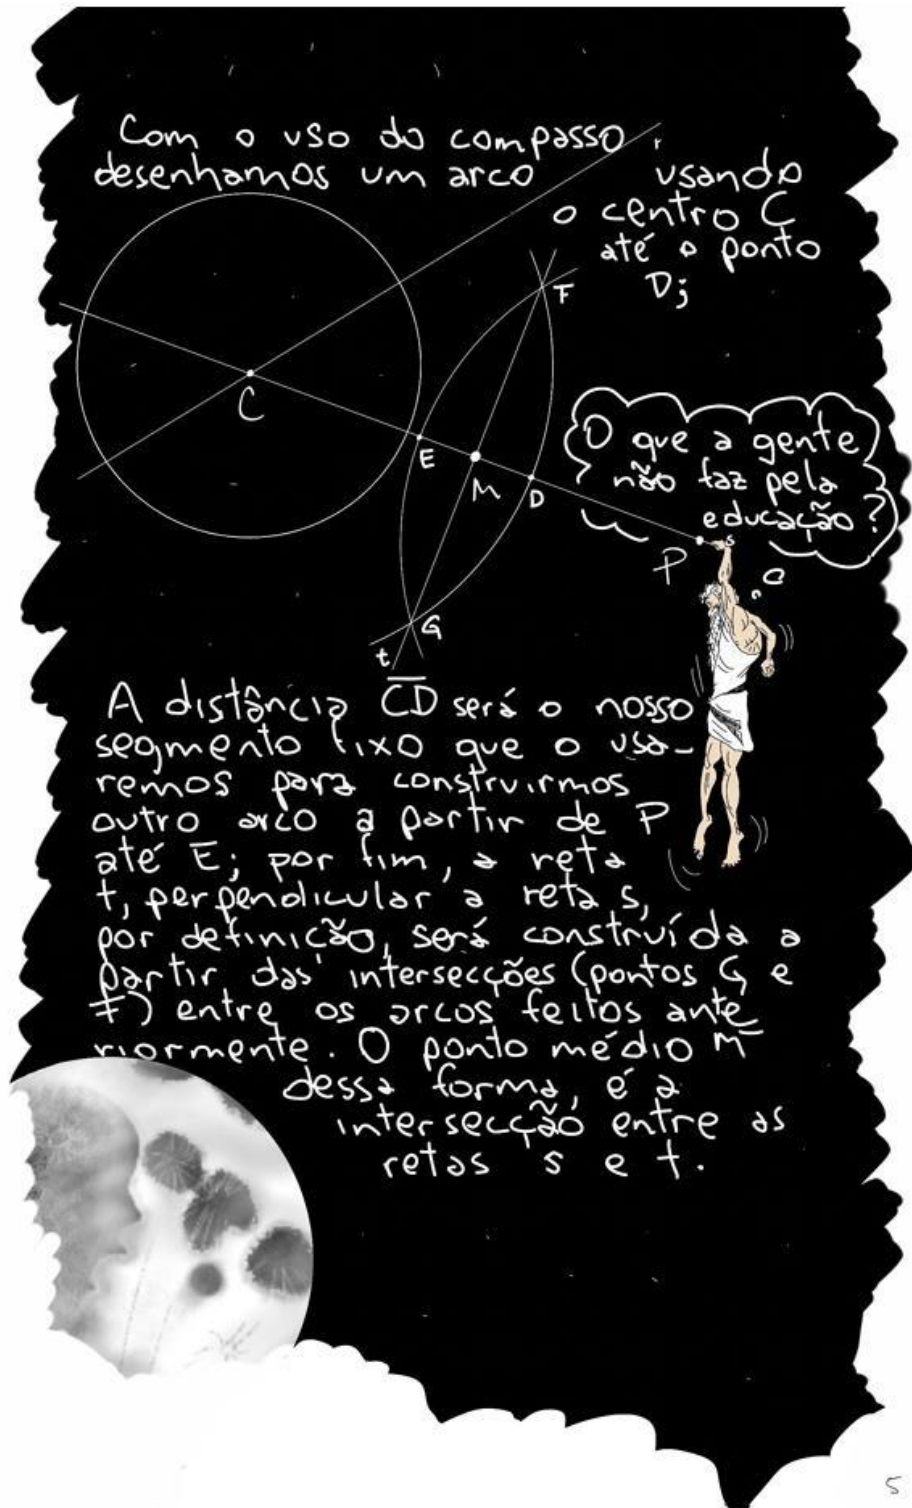 Com o uso do compasso
desenhamos um arco
r
usando
o centro C
até o ponto
D;
F
C
E
M
D
O que a gente
não faz pela
educação?
P
s
G
t
A distância CD será o nosso
segmento fixo que o usa-
remos para construirmos
outro arco a partir de P
até E; por fim, a reta
t, perpendicular a reta s,
por definição, será construída a
partir das intersecções (pontos G e
F) entre os arcos feitos ante
riormente. O ponto médio M
dessa forma, é a
intersecção entre as
retas s e t.
5